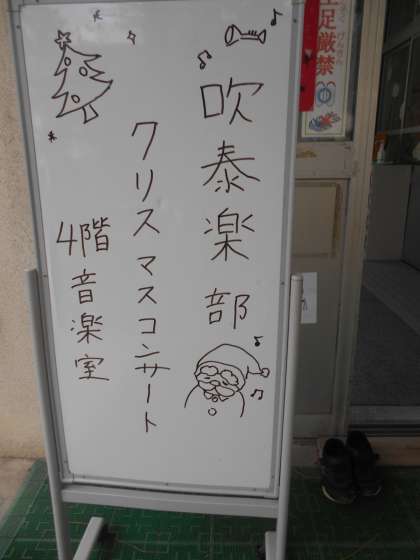 吹泰楽部
クリスマスコンサート
4階音楽室
土足厳禁
げんきん